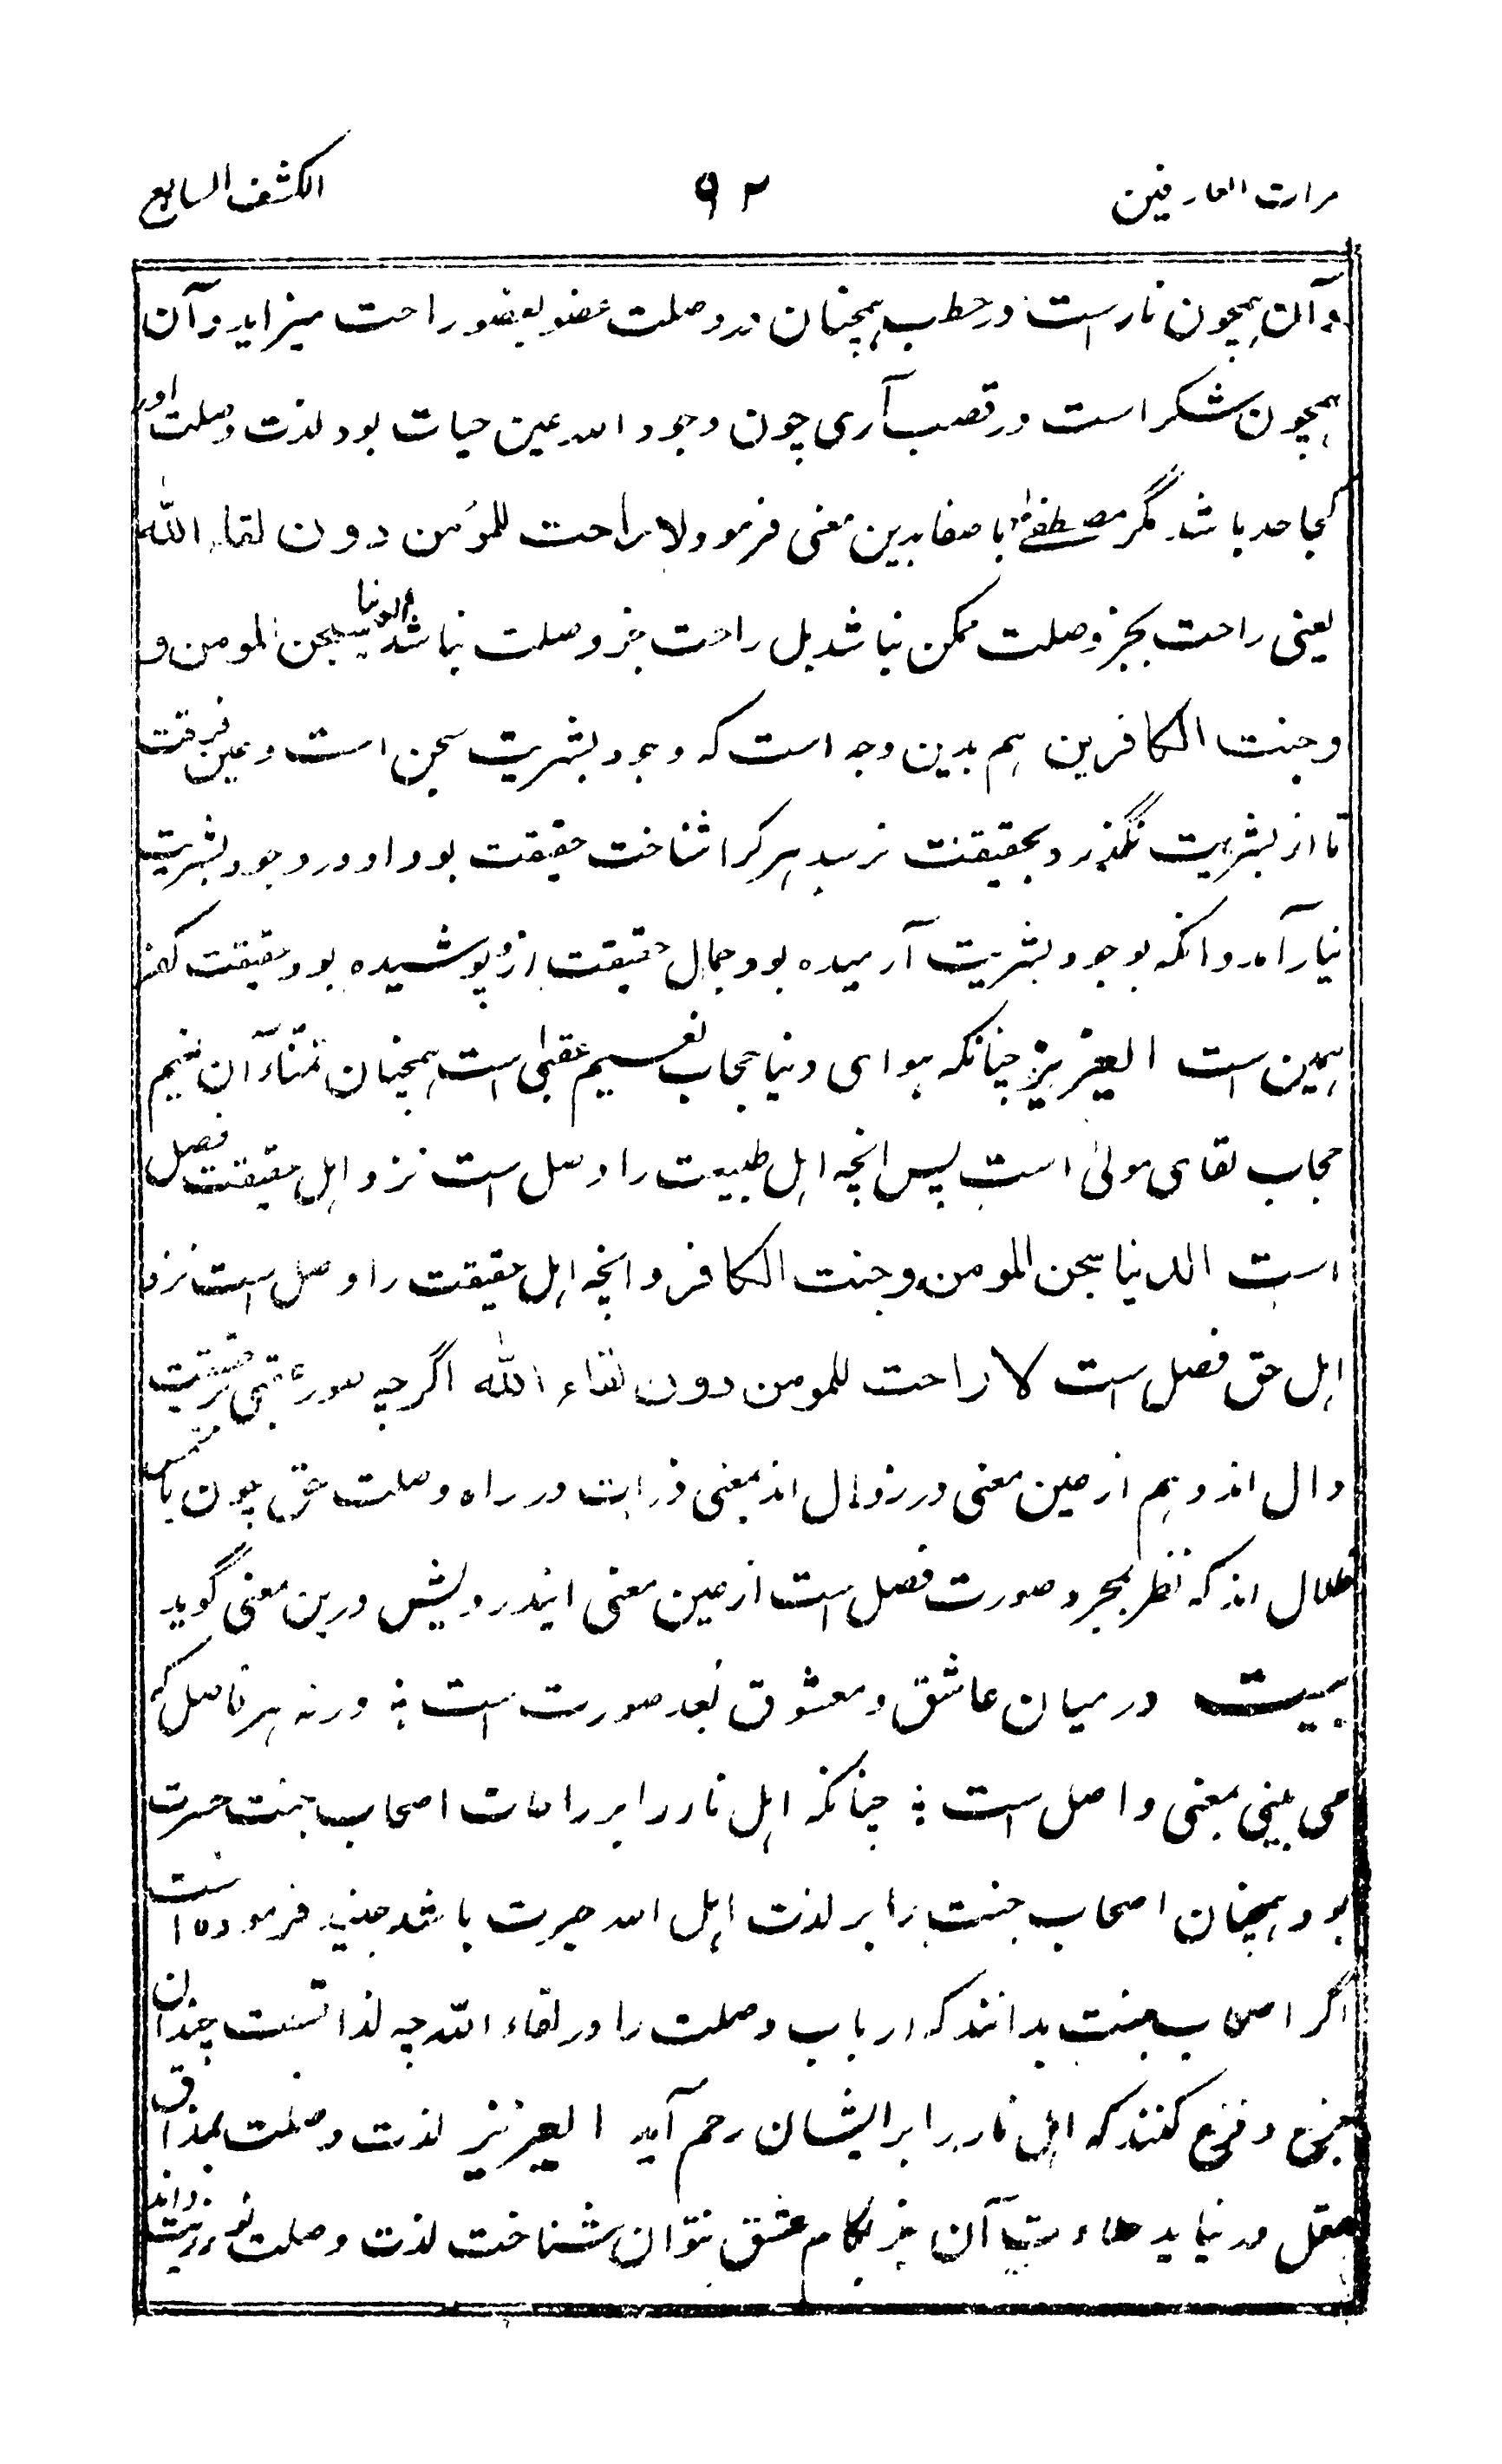 مرات العارفین ۹۲ الکشف السابع
وآن ہمچون نار ست در حطب ہمچنان در وصلت عضو بعضو راحت میزاید و آن
ہمچون شکر است در قصب آری چون وجود اللہ عین حیات بود لذت وصلت او را
کجا حد باشد مگر مصطفےٰ با صفا بدین معنی فرمود لا راحت للمؤمن دون لقاء الله
یعنی راحت بجز وصلت ممکن نباشد بل راحت جز وصلت نباشد الدنیا سجن المومن و
وجنت الکافرین ہم بدین وجہ است کہ وجود بشریت سجن است و عین فرقت
تا از بشریت نگذرد بحقیقت نرسد ہر کرا شناخت حقیقت بود او در وجود بشریت
نیار آمد و انکہ بوجود بشریت آرمیدہ بود جمال حقیقت ازو پوشیدہ بود حقیقت کفر
ہمین ست العزیز چنانکہ ہوای دنیا حجاب نعیم عقبٰی است ہمچنان تمنّاء آن نعیم
حجاب لقای مولیٰ است پس انچہ اہل طبیعت را وصل ست نزد اہل حقیقت فصل
است الدنیا سجن المومن وجنت الکافر و انچہ اہل حقیقت را وصل ست نزد
اہل حق فصل ست لا راحت للمومن دون لقاء الله اگرچہ صورۃ حقیقت
دال اند و ہم از عین معنی در زوال اند بمعنی ذرات در راہ وصلت حق چون با شمس
ظلال اند کہ نظر بمجرد صورت فصل ست از عین معنی ایندرویش درین معنی گوید
بیت درمیان عاشق و معشوق بُعد صورت ست ؛ ورنہ ہر فاصل کہ
می بینی بمعنی واصل ست ؛ چنانکہ اہل نار را بر راحات اصحاب جنت حسرت
بود ہمچنان اصحاب جنت را بر لذت اہل اللہ حیرت باشد جنید فرمودہ است
اگر اصحاب جنت بدانند کہ ارباب وصلت را در لقاء اللّٰہ چہ لذا تست چندان
جزع و فزع کنند کہ اہل نار را بر ایشان رحم آید العزیز لذت وصلت بمذاق
عقل در نیاید حلاوت آن جز بکام عشق نتوان شناخت لذت وصلت